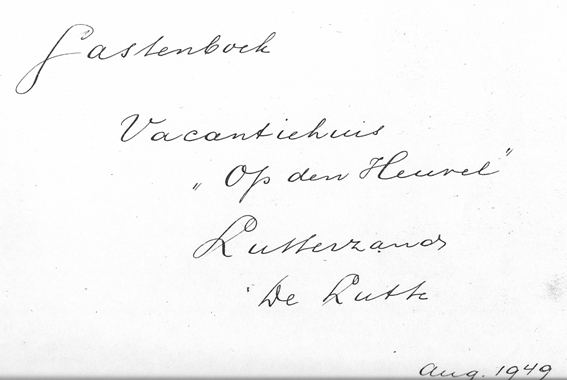 Gastenboek
Vacantiehuis
„Op den Heuvel”
Lutterzand
De Lutte
Aug. 1949